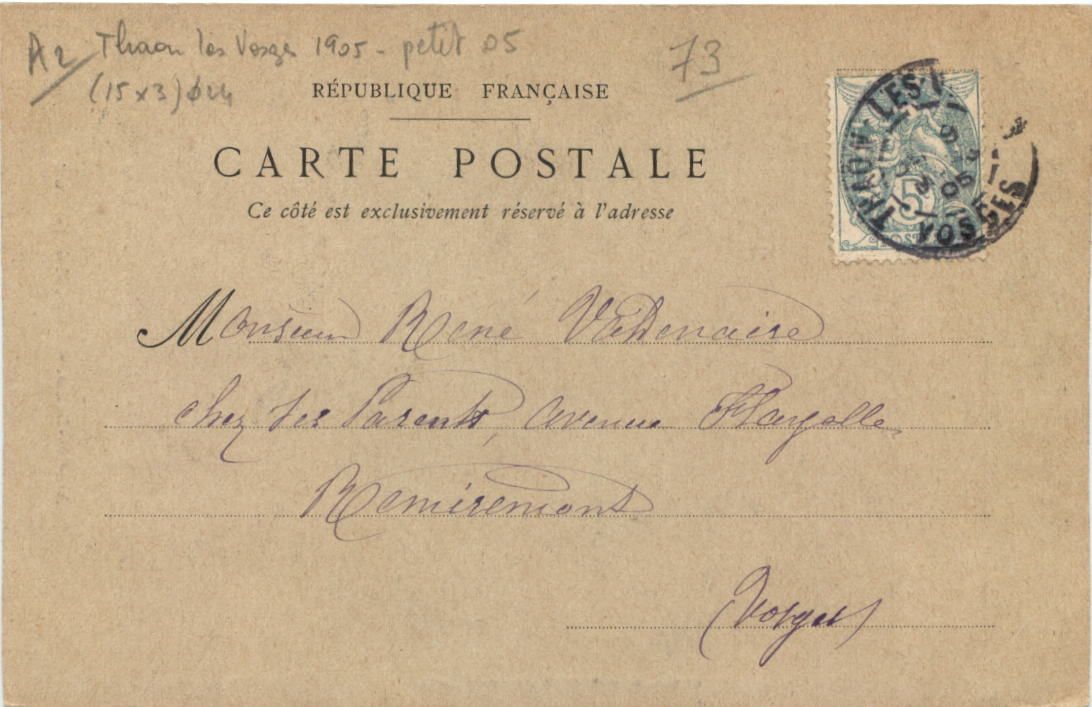 A2 Thaon les Vosges 1905 - petit 05
(15 x 3) 024
73
RÉPUBLIQUE FRANÇAISE
CARTE POSTALE
Ce côté est exclusivement réservé à l'adresse
THAON-LES-V.
VOSGES
05
5
POST
Monsieur René Valdenaire
chez ses Parents, avenue
Remiremont
(Vosges)